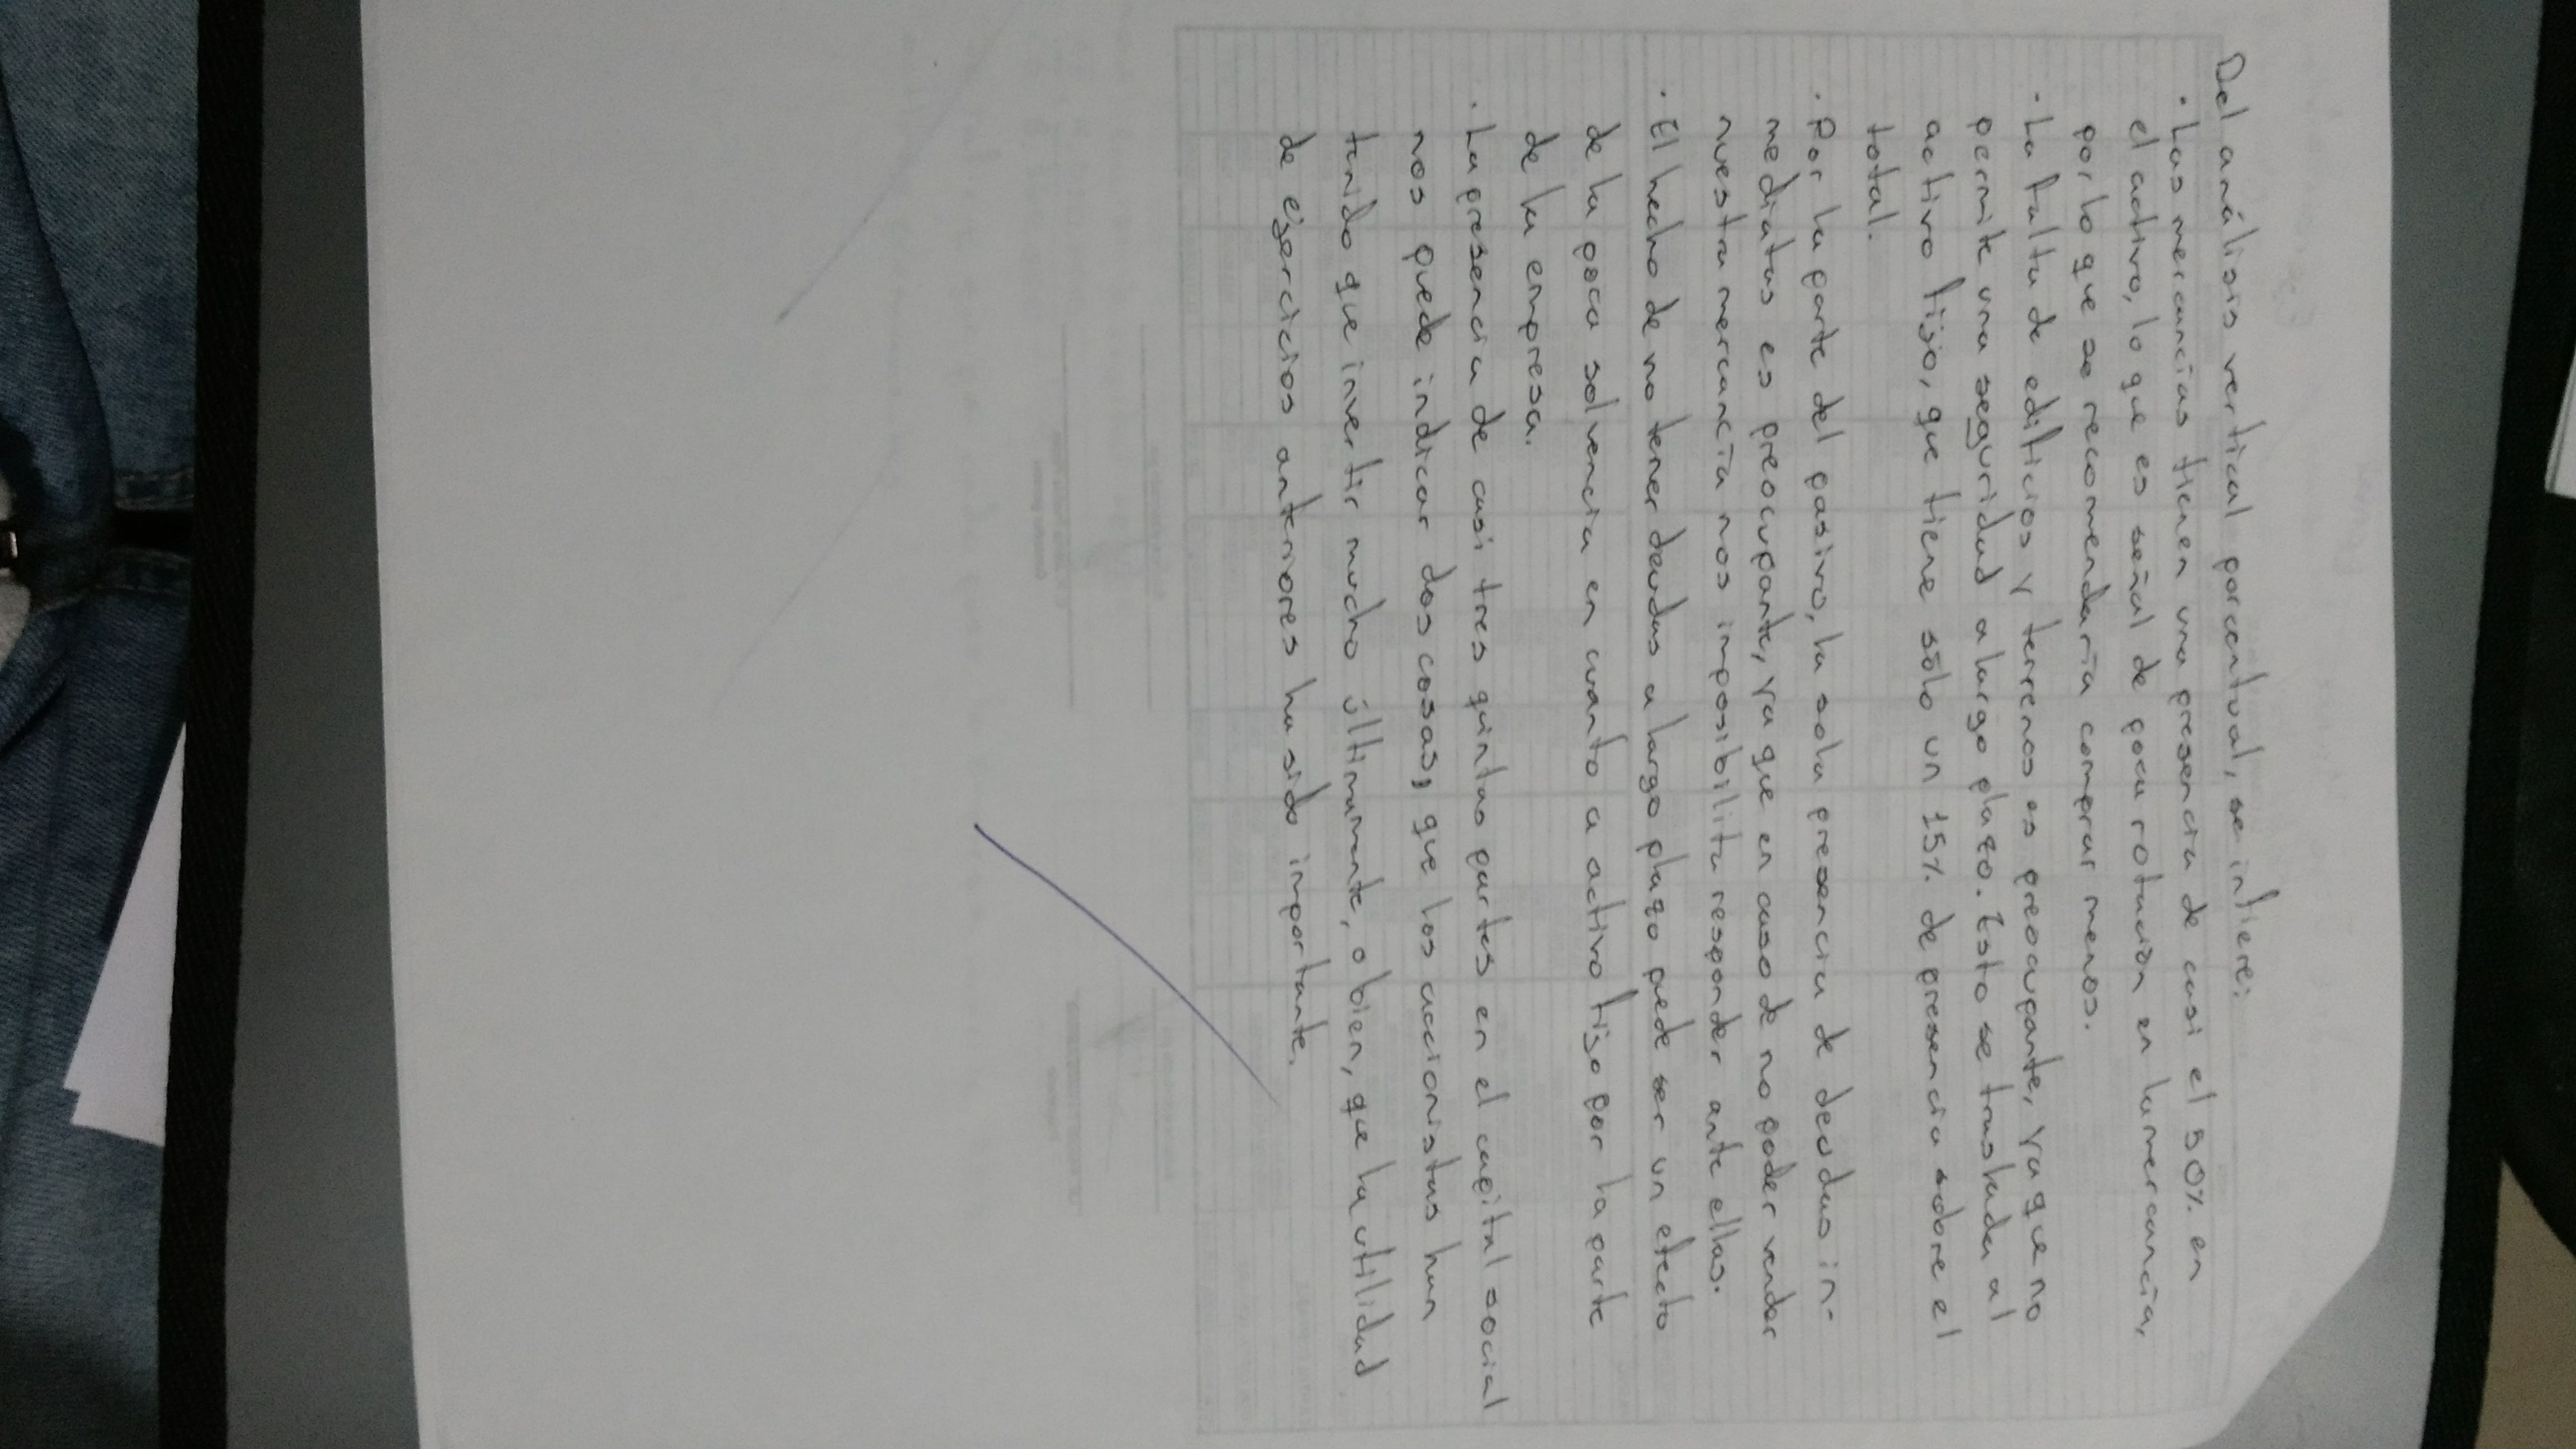 Del análisis vertical porcentual, se infiere:
· Las mercancías tienen una presencia de casi el 50% en
el activo, lo que es señal de poca rotación en la mercancía,
por lo que se recomendaría comprar menos.
· La falta de edificios y terrenos es preocupante, ya que no
permite una seguridad a largo plazo. Esto se traslada al
activo fijo, que tiene sólo un 15% de presencia sobre el
total.
· Por la parte del pasivo, la sola presencia de deudas in-
mediatas es preocupante, ya que en caso de no poder vender
nuestra mercancía nos imposibilita responder ante ellas.
· El hecho de no tener deudas a largo plazo puede ser un efecto
de la poca solvencia en cuanto a activo fijo por la parte
de la empresa.
· La presencia de casi tres quintas partes en el capital social
nos puede indicar dos cosas, que los accionistas han
tenido que invertir mucho últimamente, o bien, que la utilidad
de ejercicios anteriores ha sido importante.